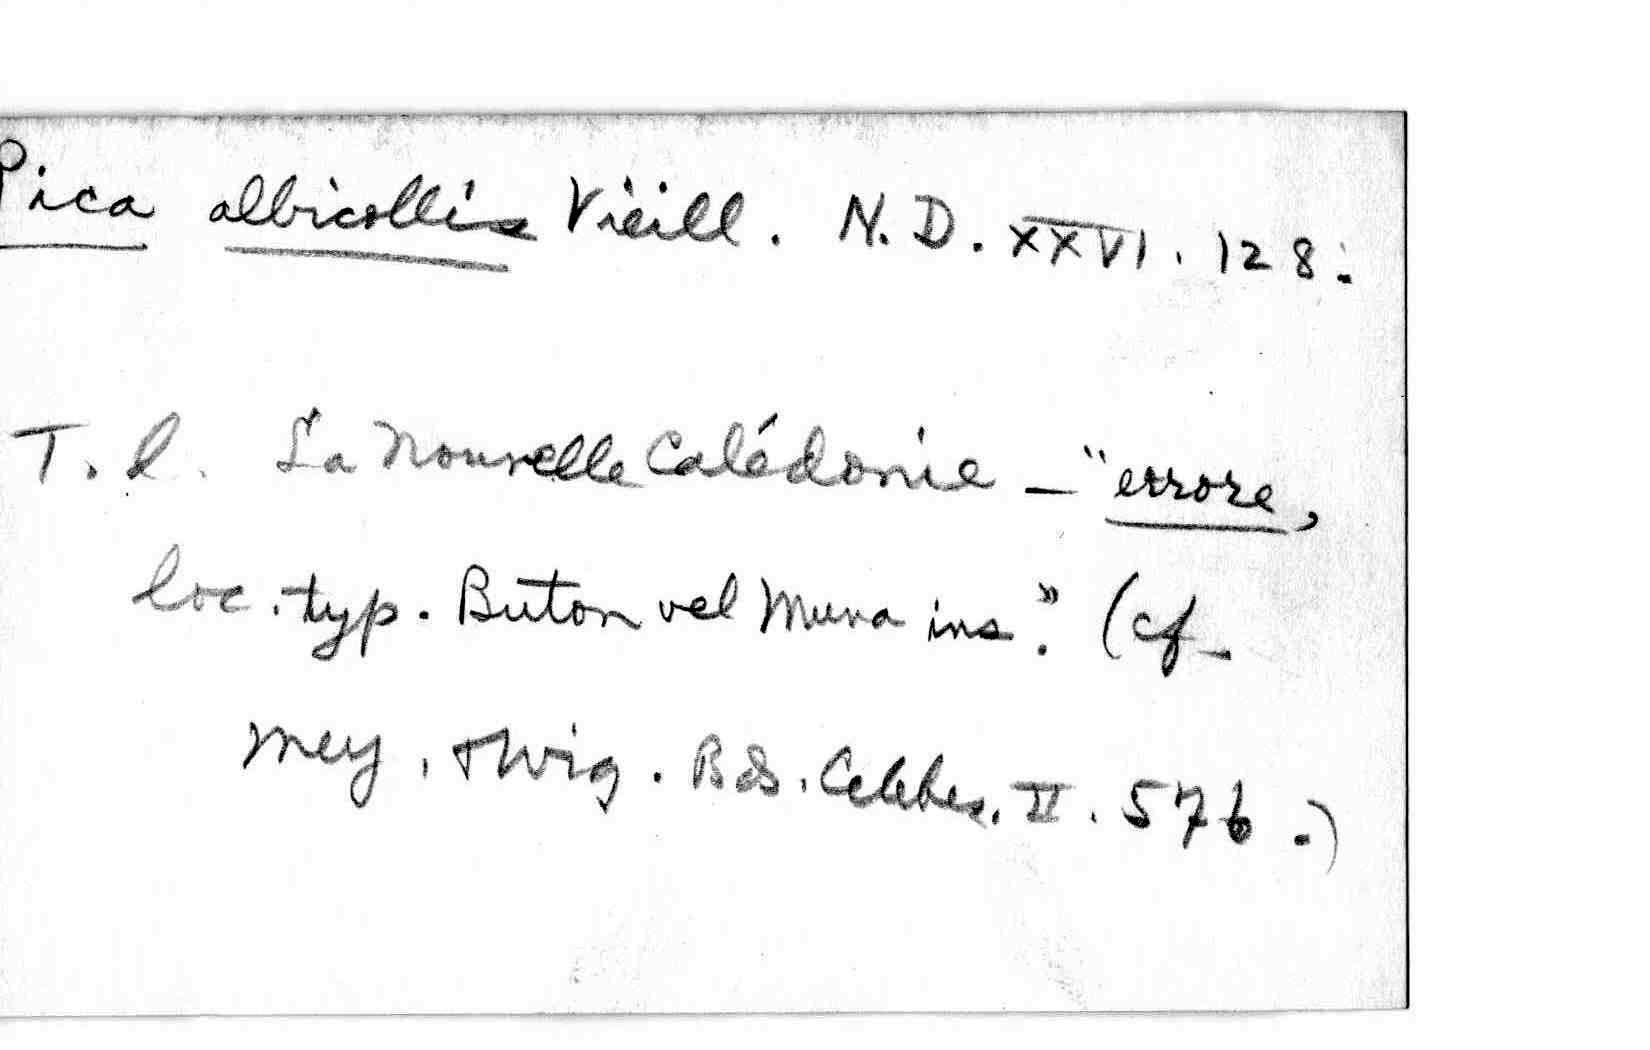 Pica albicollis Vieill. N.D. XXVI. 128.
T. l. La Nouvelle Calédonie – "errore,
loc. typ. Buton vel Muna ins." (cf.
Mey. & Wig. Bds. Celebes. II. 576.)